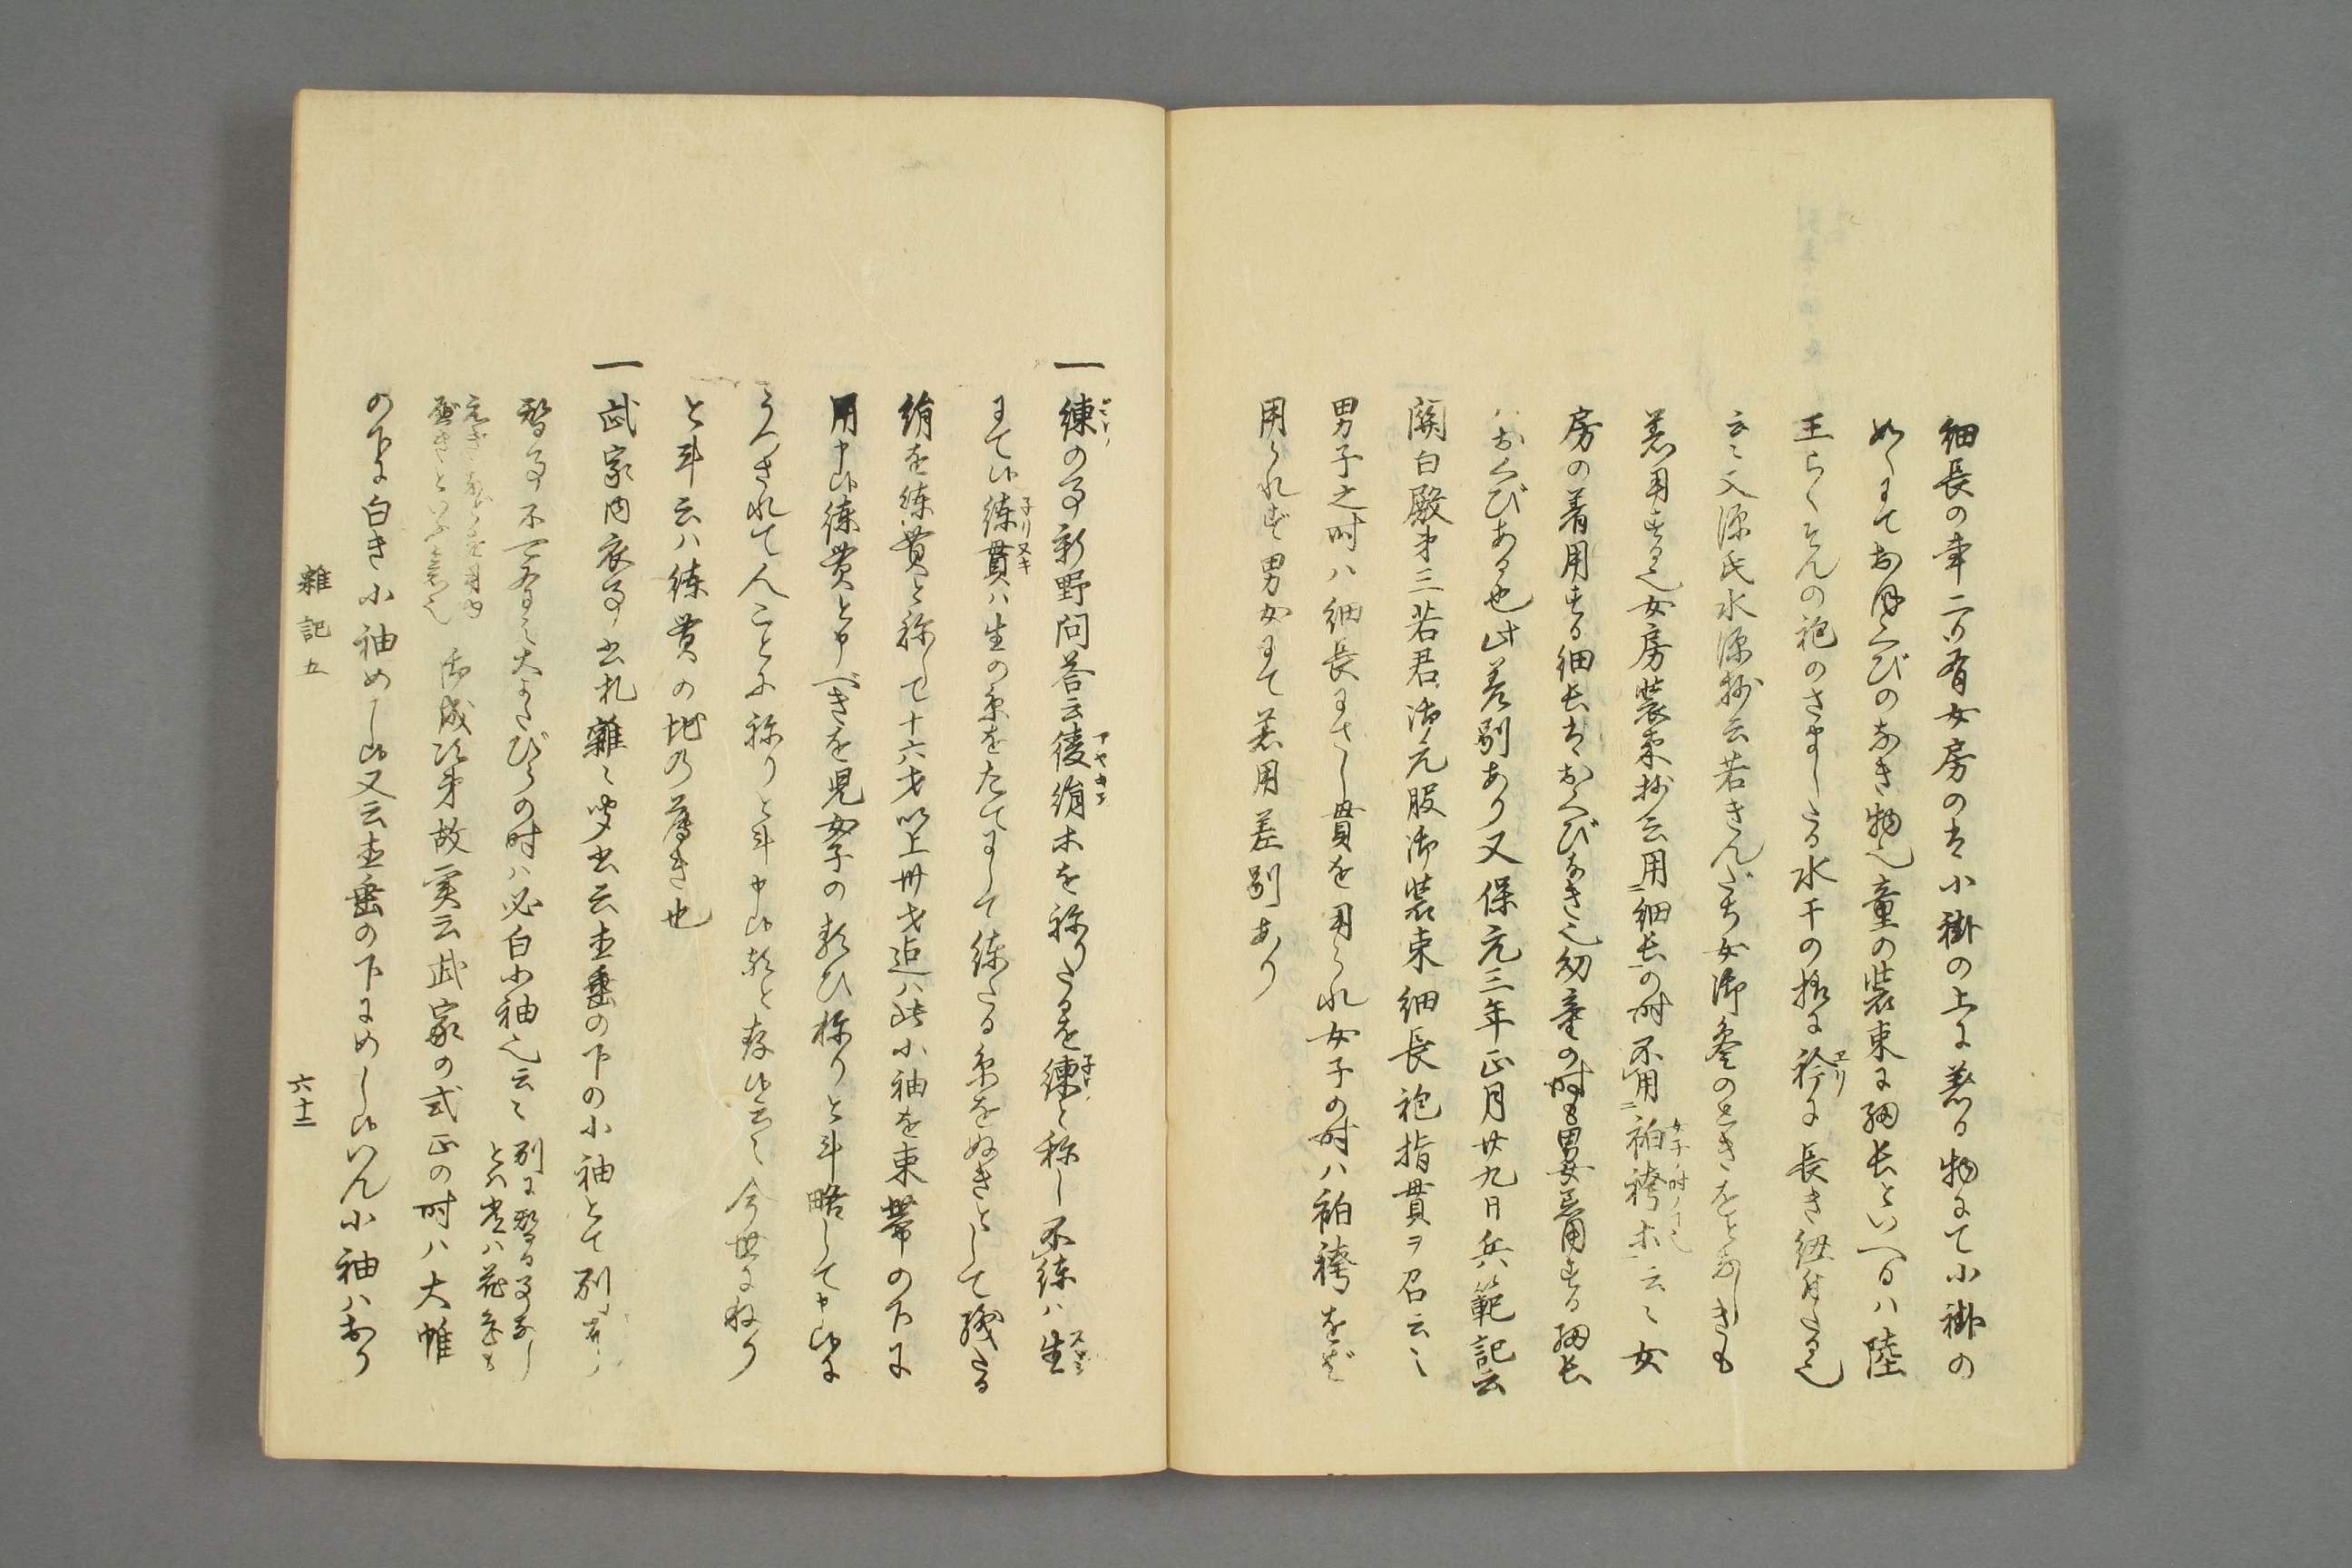 細長の事二ツ有女房のは小袿の上に着る物にて小袿の
如くにておほくびのなき物也童の装束に細長といへるハ陸
王らくそんの袍のさましたる水干の様に衿に長き紐付たる也
云々又源氏水源抄云若きんだち女御参のときをとなしきも
着用する也女房装束抄云用細長の時不用袙袴ホ云々女
房の着用する細長はおくびなき也幼童の時も男女着用する細長
ハおくびある也此差別あり又保元三年正月廿九日兵範記云
関白殿第三若君御元服御装束細長袍指貫ヲ召云々
男子之時ハ細長にさし貫を用られ女子の時ハ袙袴をぞ
用られき男女にて着用差別あり
一練の事新野問答云綾絹ホを祢りたるを練と称し不練ハ生
にて候練貫ハ生の糸をたてにして練たる糸をぬきとして織たる
絹を練貫と称して十六才以上卅才迄ハ此小袖を束帯の下に
用申候練貫と申べきを児女子の類ひ祢りと斗略して申候に
と斗云ハ練貫の地の薄き也
一武家内衣事書札雑々聞書云直垂の下の小袖とて別
替事不可有之大かたびらの時ハ必白小袖也云々 別に替る事なし
とハ常ハ花色も
御成次第故実云武家の式正の時ハ大帷
の下に白き小袖めし候又云直垂の下にめし候いん小袖ハおり
雑記五
六十二